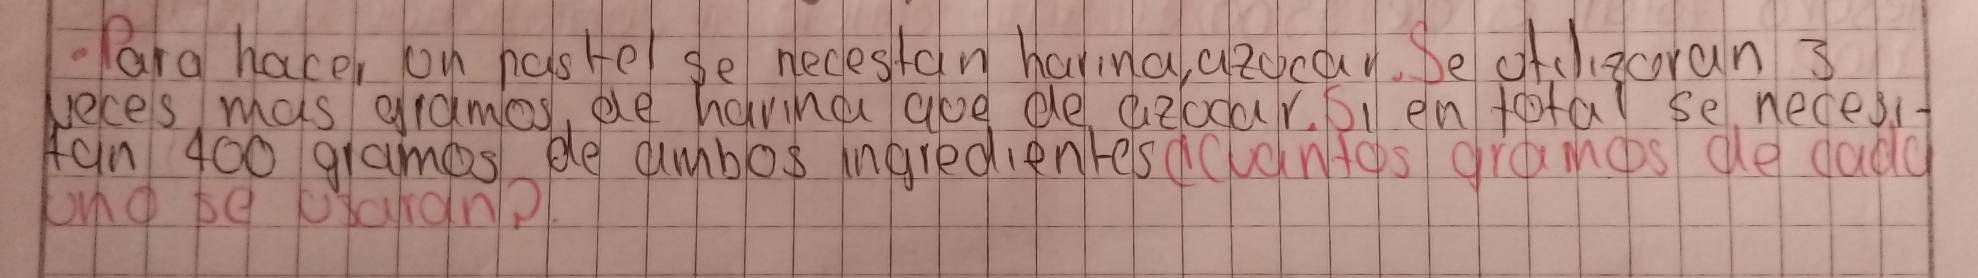 Para hacer un pastel se necestan harina, azucar. Se utilizaran 3
veces mas gramos de harina que de azucar. Si en total se necesi-
tan 400 gramos de ambos ingredientes ¿Cuantos gramos de cada
uno se usaran?.